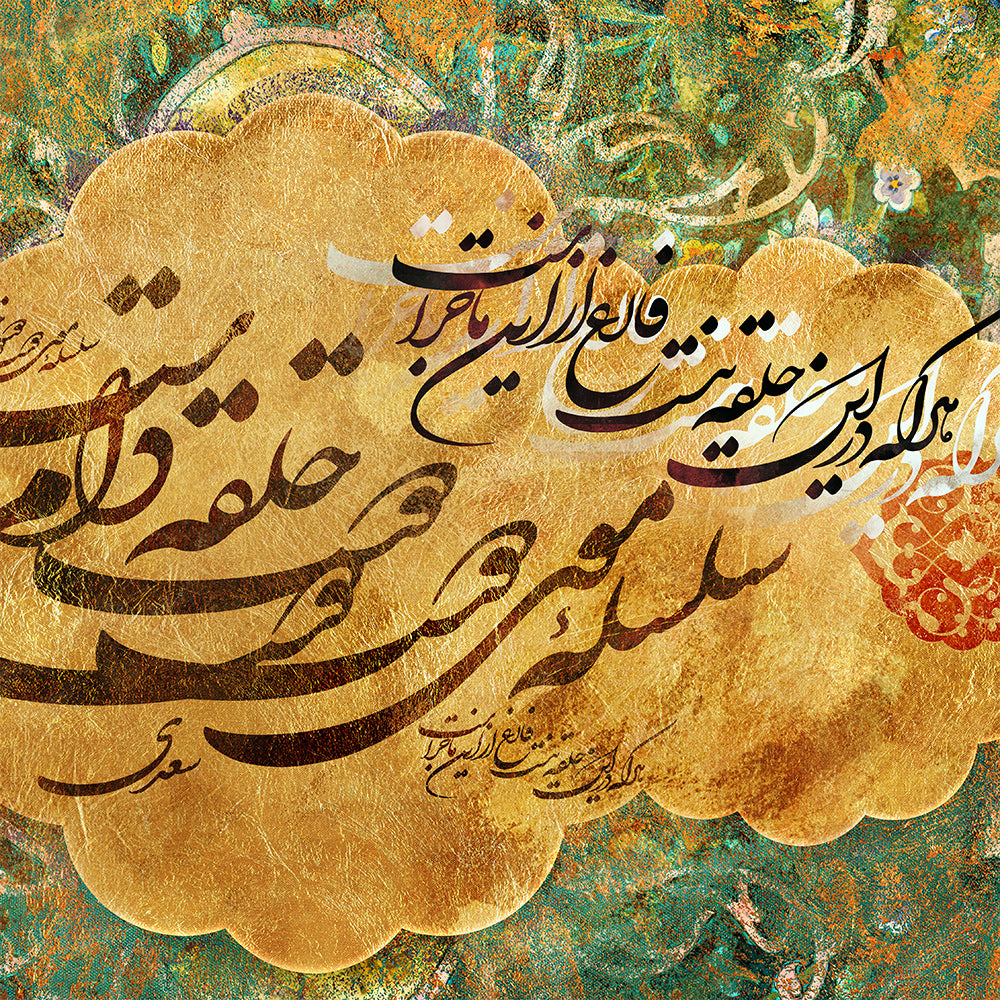 هر که در این حلقه نیست فارغ از این ماجراست
سلسله موی دوست حلقه دام
سعدی
هر که در این حلقه نیست فارغ از این ماجراست
سلسله موی